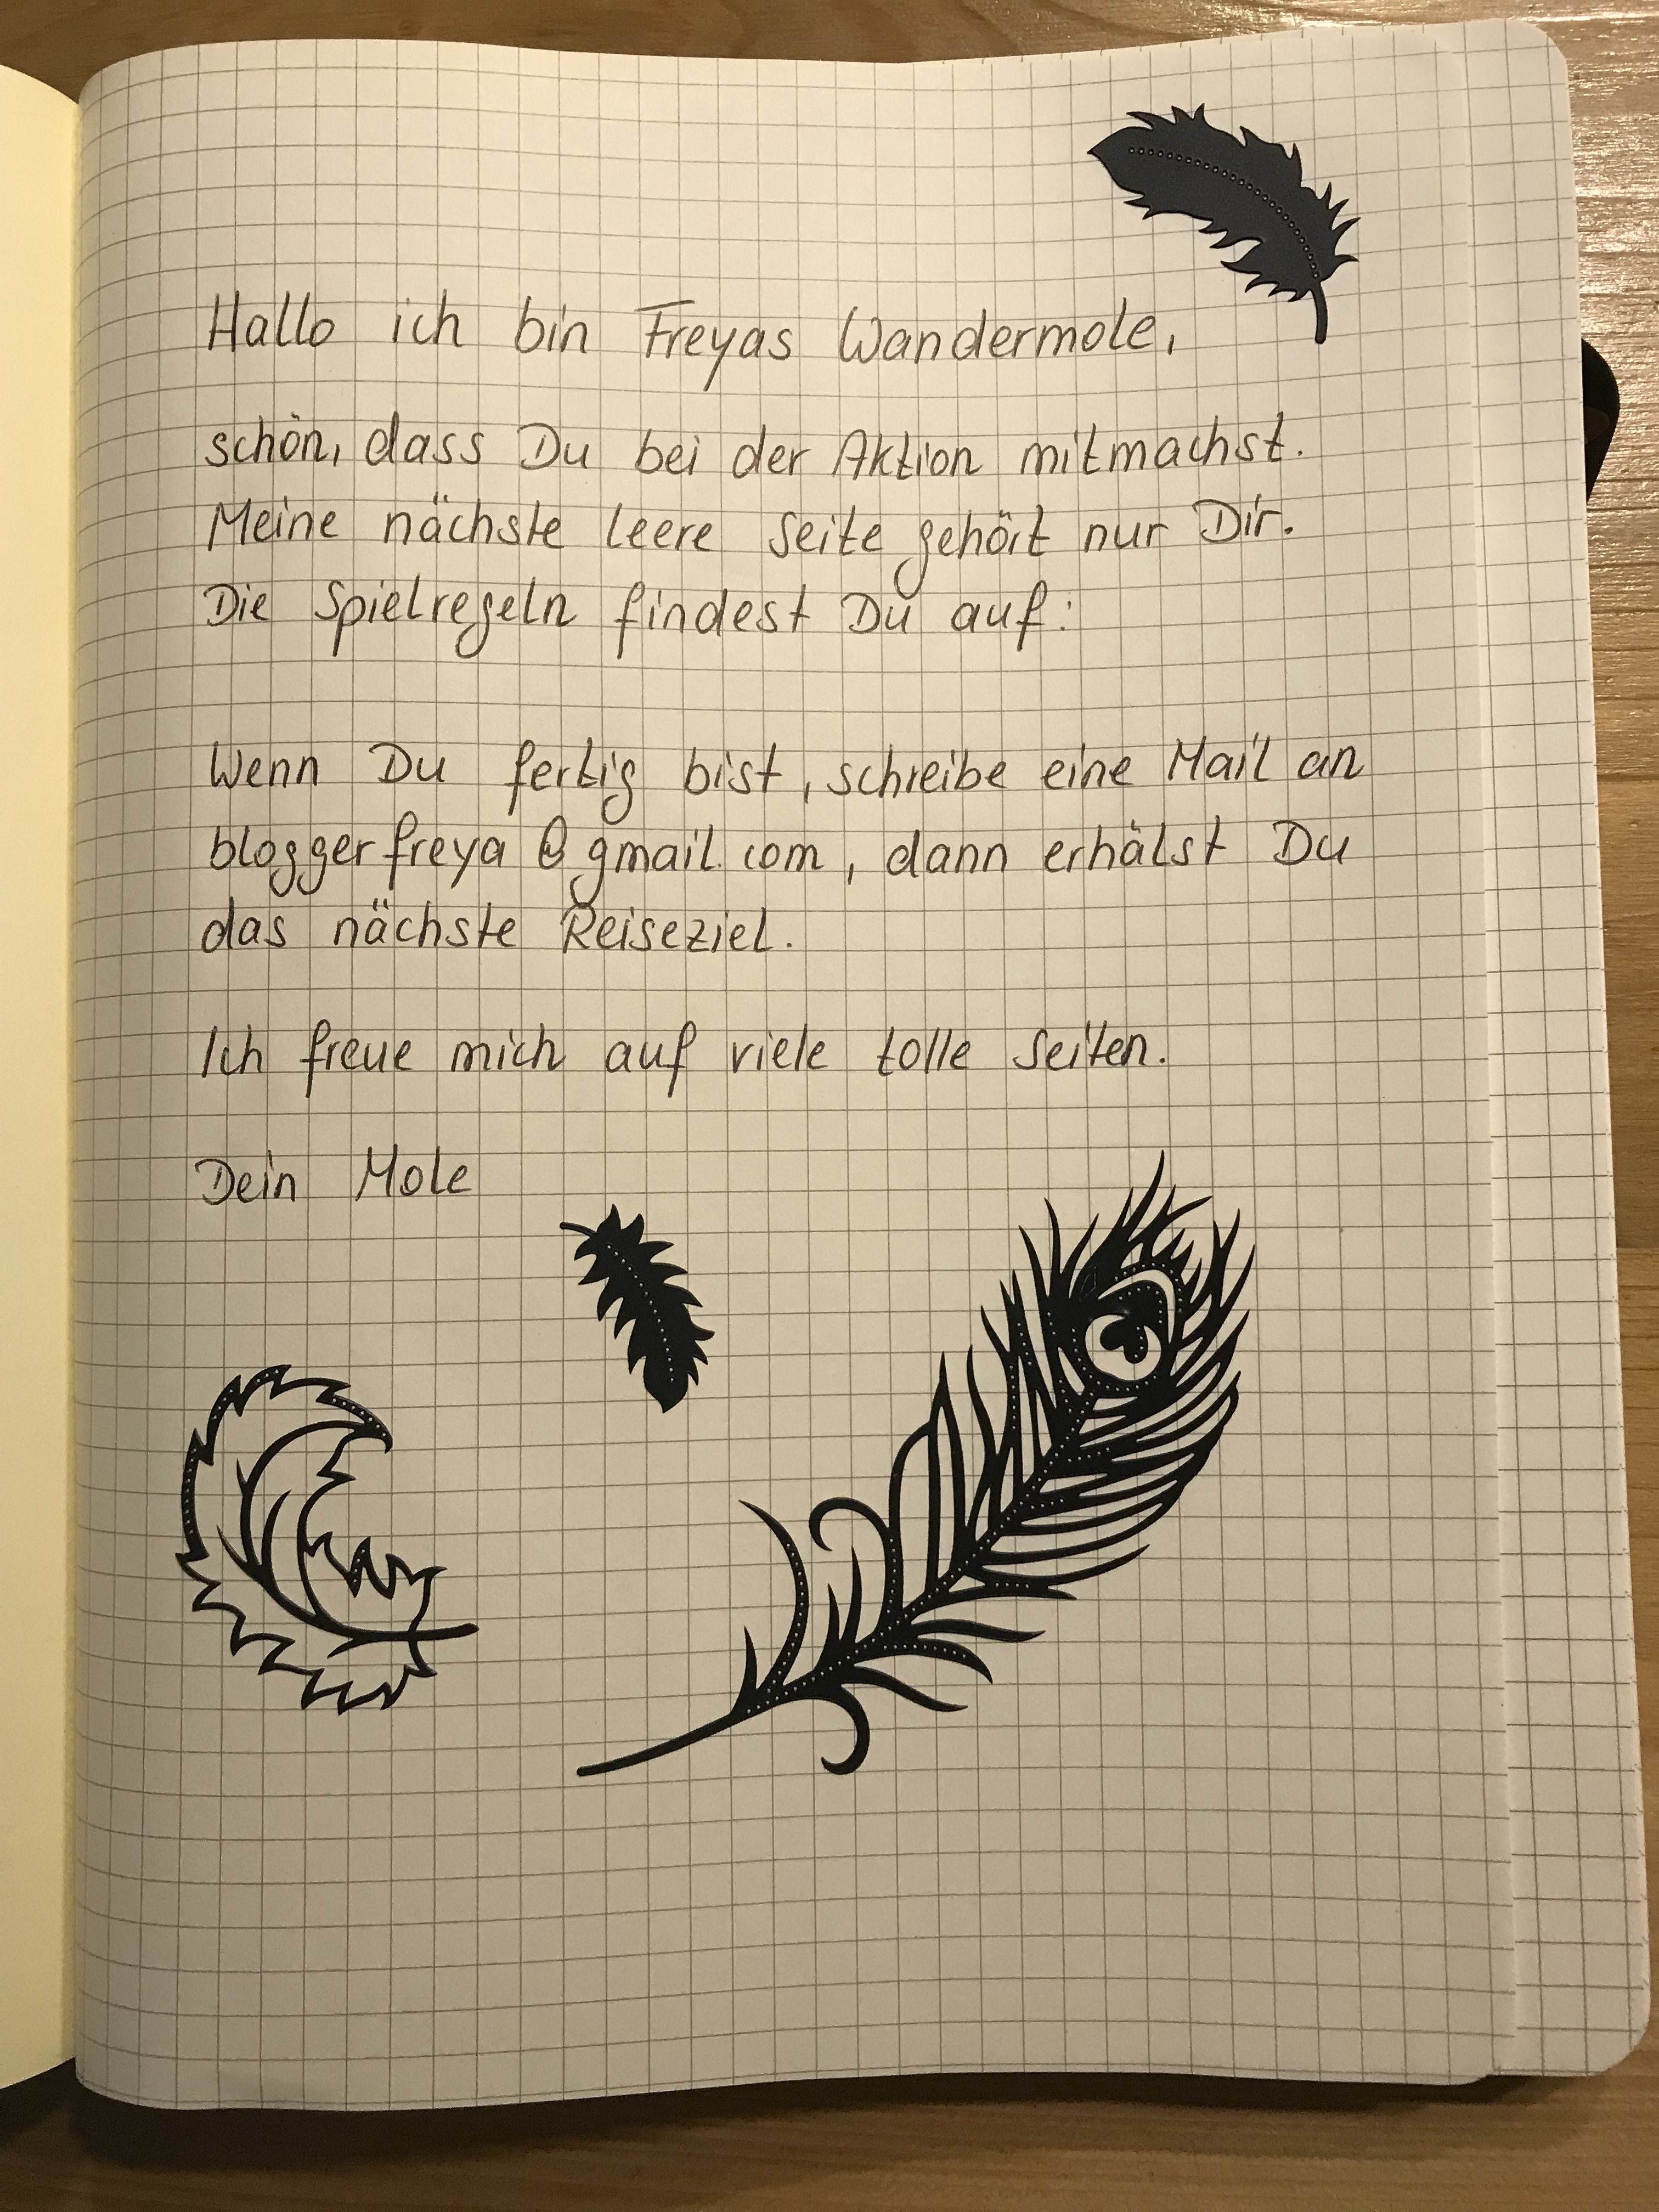 Hallo ich bin Freyas Wandermole,
schön, dass Du bei der Aktion mitmachst.
Meine nächste leere Seite gehört nur Dir.
Die Spielregeln findest Du auf:
Wenn Du fertig bist, schreibe eine Mail an
bloggerfreya@gmail.com, dann erhälst Du
das nächste Reiseziel.
Ich freue mich auf viele tolle Seiten.
Dein Mole